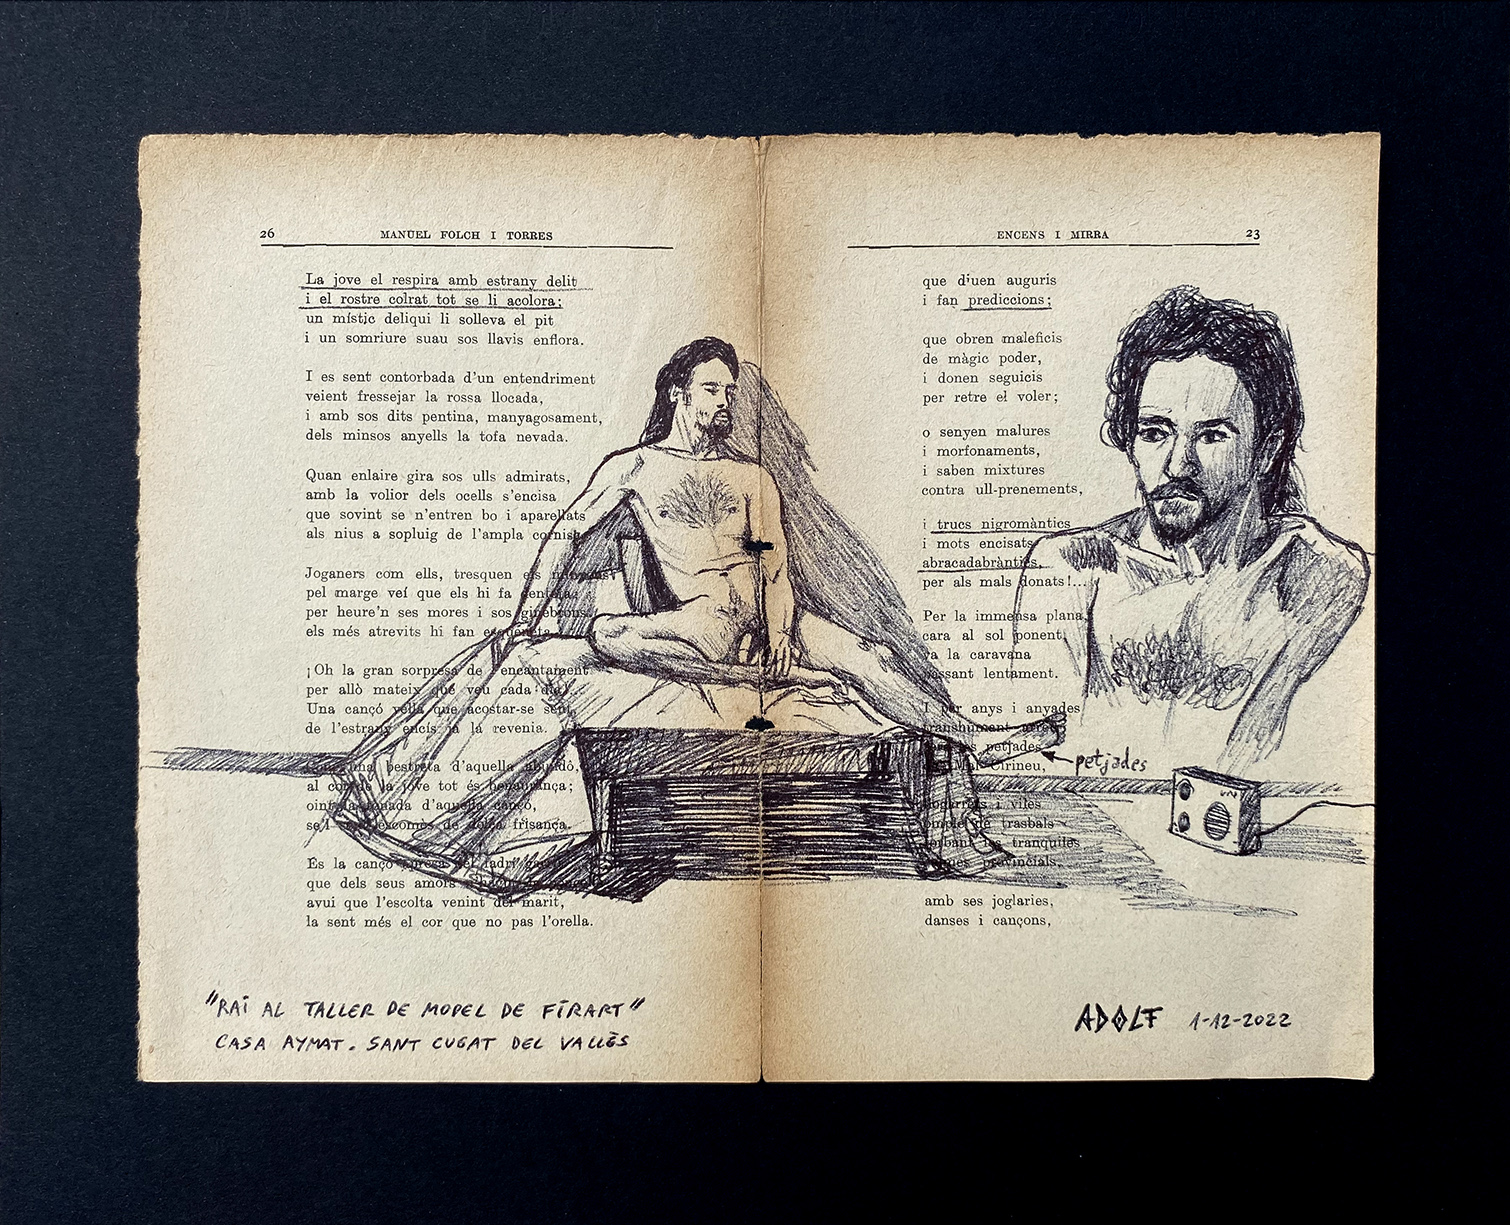 26 MANUEL FOLCH I TORRES
La jove el respira amb estrany delit
i el rostre colrat tot se li acolora;
un místic deliqui li solleva el pit
i un somriure suau sos llavis enflora.
I es sent contorbada d'un entendriment
veient fressejar la rossa llocada,
i amb sos dits pentina, manyagosament,
dels minsos anyells la tofa nevada.
Quan enlaire gira sos ulls admirats,
amb la volior dels ocells s'encisa
que sovint se n'entren bo i aparellats
als nius a sopluig de l'ampla cornisa
Joganers com ells, tresquen els
pel marge veí que els hi fa
per heure'n ses mores i sos ginebrons
els més atrevits hi fan esqueneta.
¡Oh la gran sorpresa de l'encantament
per allò mateix que veu cada dia!
Una cançó vella que acostar-se sent,
de l'estrany encís ja la revenia.
bestreta d'aquella
al cor de la jove tot és benaurança;
oint la tonada d'aquella cançó,
de dolça frisança.
És la cançó
que dels seus amors
avui que l'escolta venint del marit,
la sent més el cor que no pas l'orella.
"RAI AL TALLER DE MODEL DE FIRART"
CASA AYMAT. SANT CUGAT DEL VALLÈS
ENCENS I MIRRA 23
que diuen auguris
i fan prediccions;
que obren maleficis
de màgic poder,
i donen seguicis
per retre el voler;
o senyen malures
i morfonaments,
i saben mixtures
contra ull-prenements,
i trucs nigromàntics
i mots encisats
abracadabràntics,
per als mals donats!...
Per la immensa plana,
cara al sol ponent,
va la caravana
passant lentament.
I per anys i anyades
transhumant
petjades
Cirineu,
petjades
i viles
de trasbals
torbant tranquiles
provincials,
amb ses joglaries,
danses i cançons,
ADOLF 1-12-2022